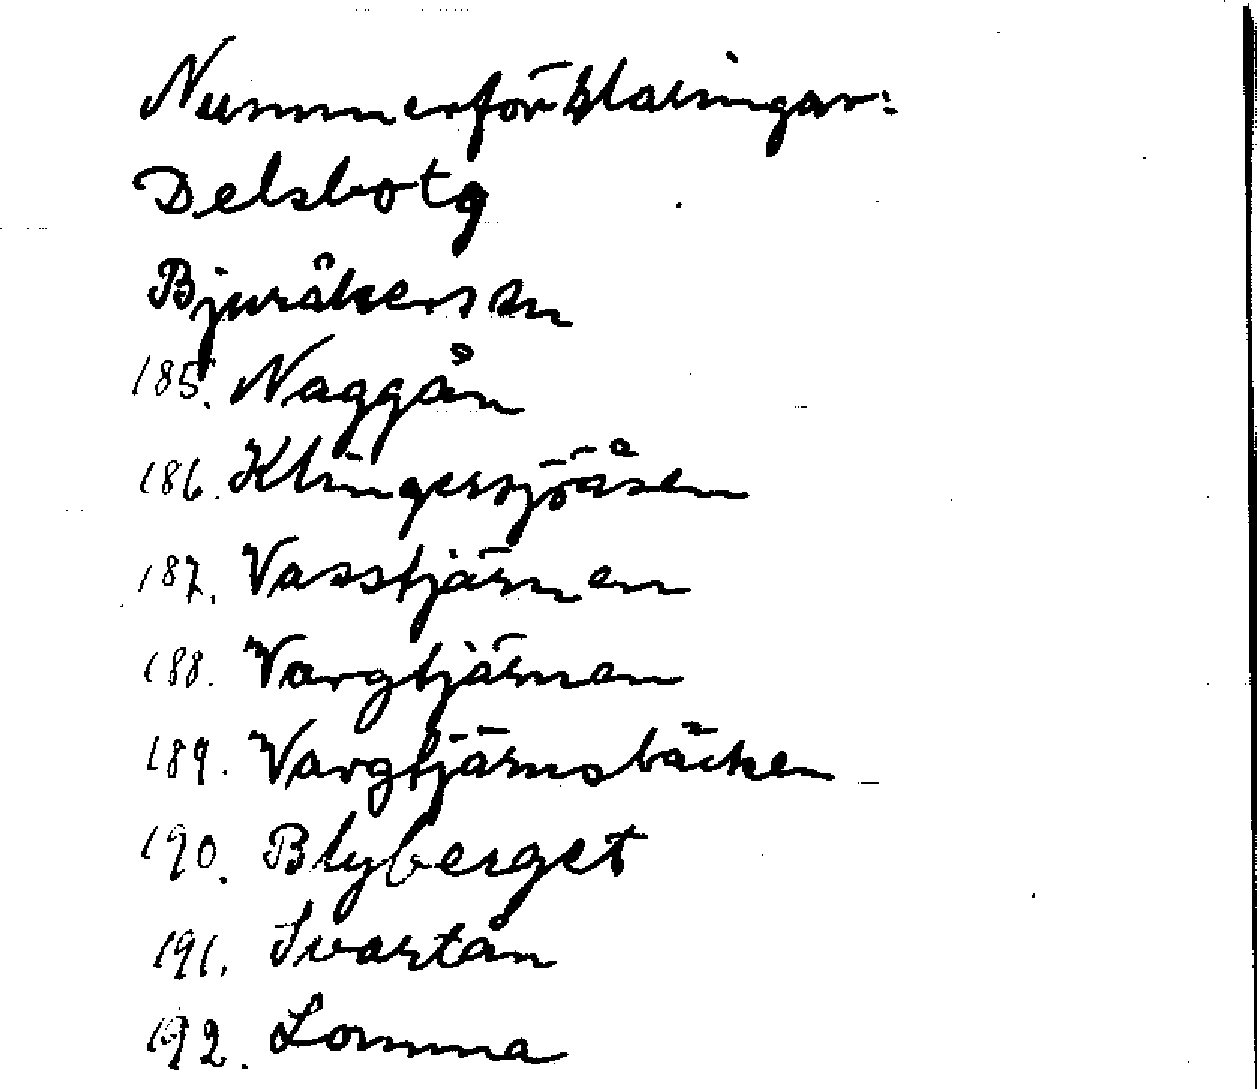 Nummerförklaringar:
Delsbotg
Bjuråkers sn
185. Naggån
186. Klingersjöåsen
187. Vasstjärnen
188. Vargtjärnen
189. Vargtjärnsbäcken
190. Blyberget
191. Svartån
192. Lomma